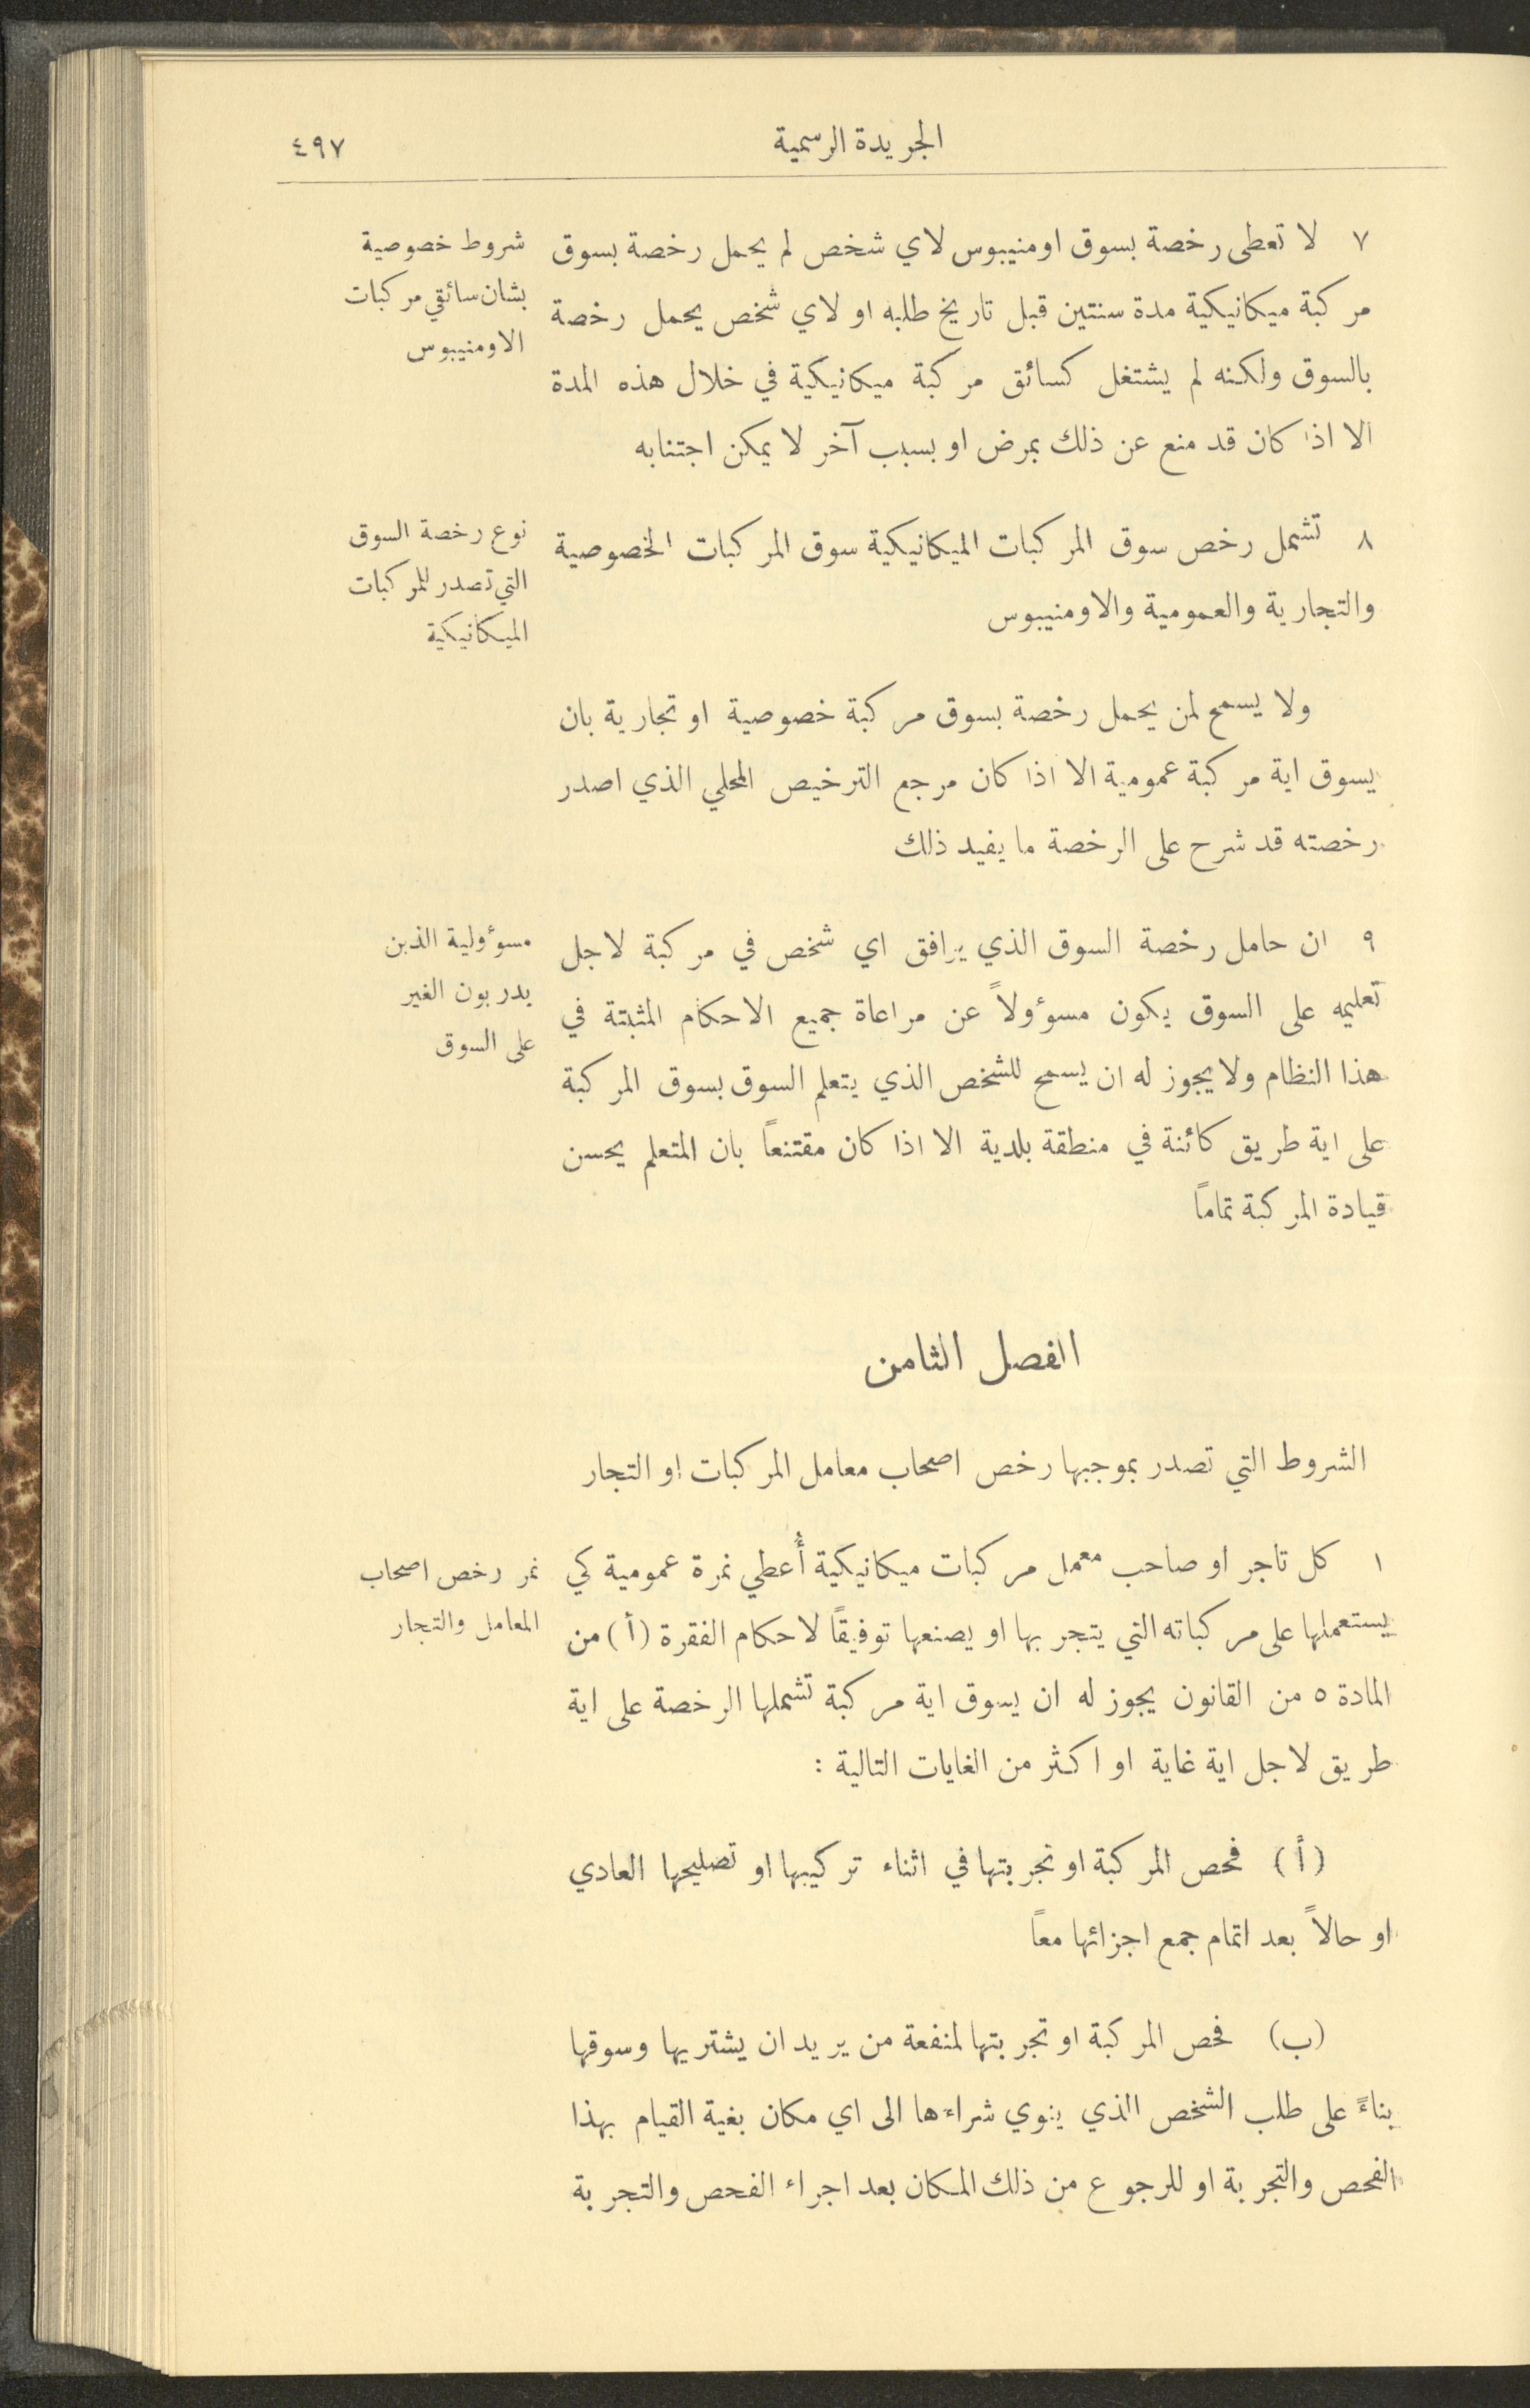 الجريدة الرسمية
٤٩٧
٧ لا تعطى رخصة بسوق اومنيبوس لاي شخص لم يحمل رخصة بسوق
مركبة ميكانيكية مدة سنتين قبل تاريخ طلبه او لاي شخص يحمل رخصة
بالسوق ولكنه لم يشتغل كسائق مركبة ميكانيكية في خلال هذه المدة
الا اذا كان قد منع عن ذلك بمرض او بسبب آخر لا يمكن اجتنابه
شروط خصوصية
بشان سائقي مركبات
الاومنيبوس
٨ تشمل رخص سوق المركبات الميكانيكية سوق المركبات الخصوصية
والتجارية والعمومية والاومنيبوس
نوع رخصة السوق
التي تصدر للمركبات
الميكانيكية
ولا يسمح لمن يحمل رخصة بسوق مركبة خصوصية او تجارية بان
يسوق اية مركبة عمومية الا اذا كان مرجع الترخيص المحلي الذي اصدر
رخصته قد شرح على الرخصة ما يفيد ذلك
٩ ان حامل رخصة السوق الذي يرافق اي شخص في مركبة لاجل
تعليمه على السوق يكون مسوؤولاً عن مراعاة جميع الاحكام المثبتة في
هذا النظام ولا يجوز له ان يسمح للشخص الذي يتعلم السوق بسوق المركبة
على اية طريق كائنة في منطقة بلدية الا اذا كان مقتنعاً بان المتعلم يحسن
قيادة المركبة تماماً
مسوؤولية الذين
يدربون الغير
على السوق
الفصل الثامن
الشروط التي تصدر بموجبها رخص اصحاب معامل المركبات او التجار
١ كل تاجر او صاحب معمل مركبات ميكانيكية أُعطي نمرة عمومية كي
يستعملها على مركباته التي يتجر بها او يصنعها توفيقاً لاحكام الفقرة (أ) من
المادة ٥ من القانون يجوز له ان يسوق اية مركبة تشملها الرخصة على اية
طريق لاجل اية غاية او اكثر من الغايات التالية :
نمر رخص اصحاب
المعامل والتجار
(أ) فحص المركبة او تجربتها في اثناء تركيبها او تصليحها العادي
او حالاً بعد اتمام جمع اجزائها معاً
(ب) فحص المركبة او تجربتها لمنفعة من يريد ان يشتريها وسوقها
بناءً على طلب الشخص الذي ينوي شراءها الى اي مكان بغية القيام بهذا
الفحص والتجربة او للرجوع من ذلك المكان بعد اجراء الفحص والتجربة